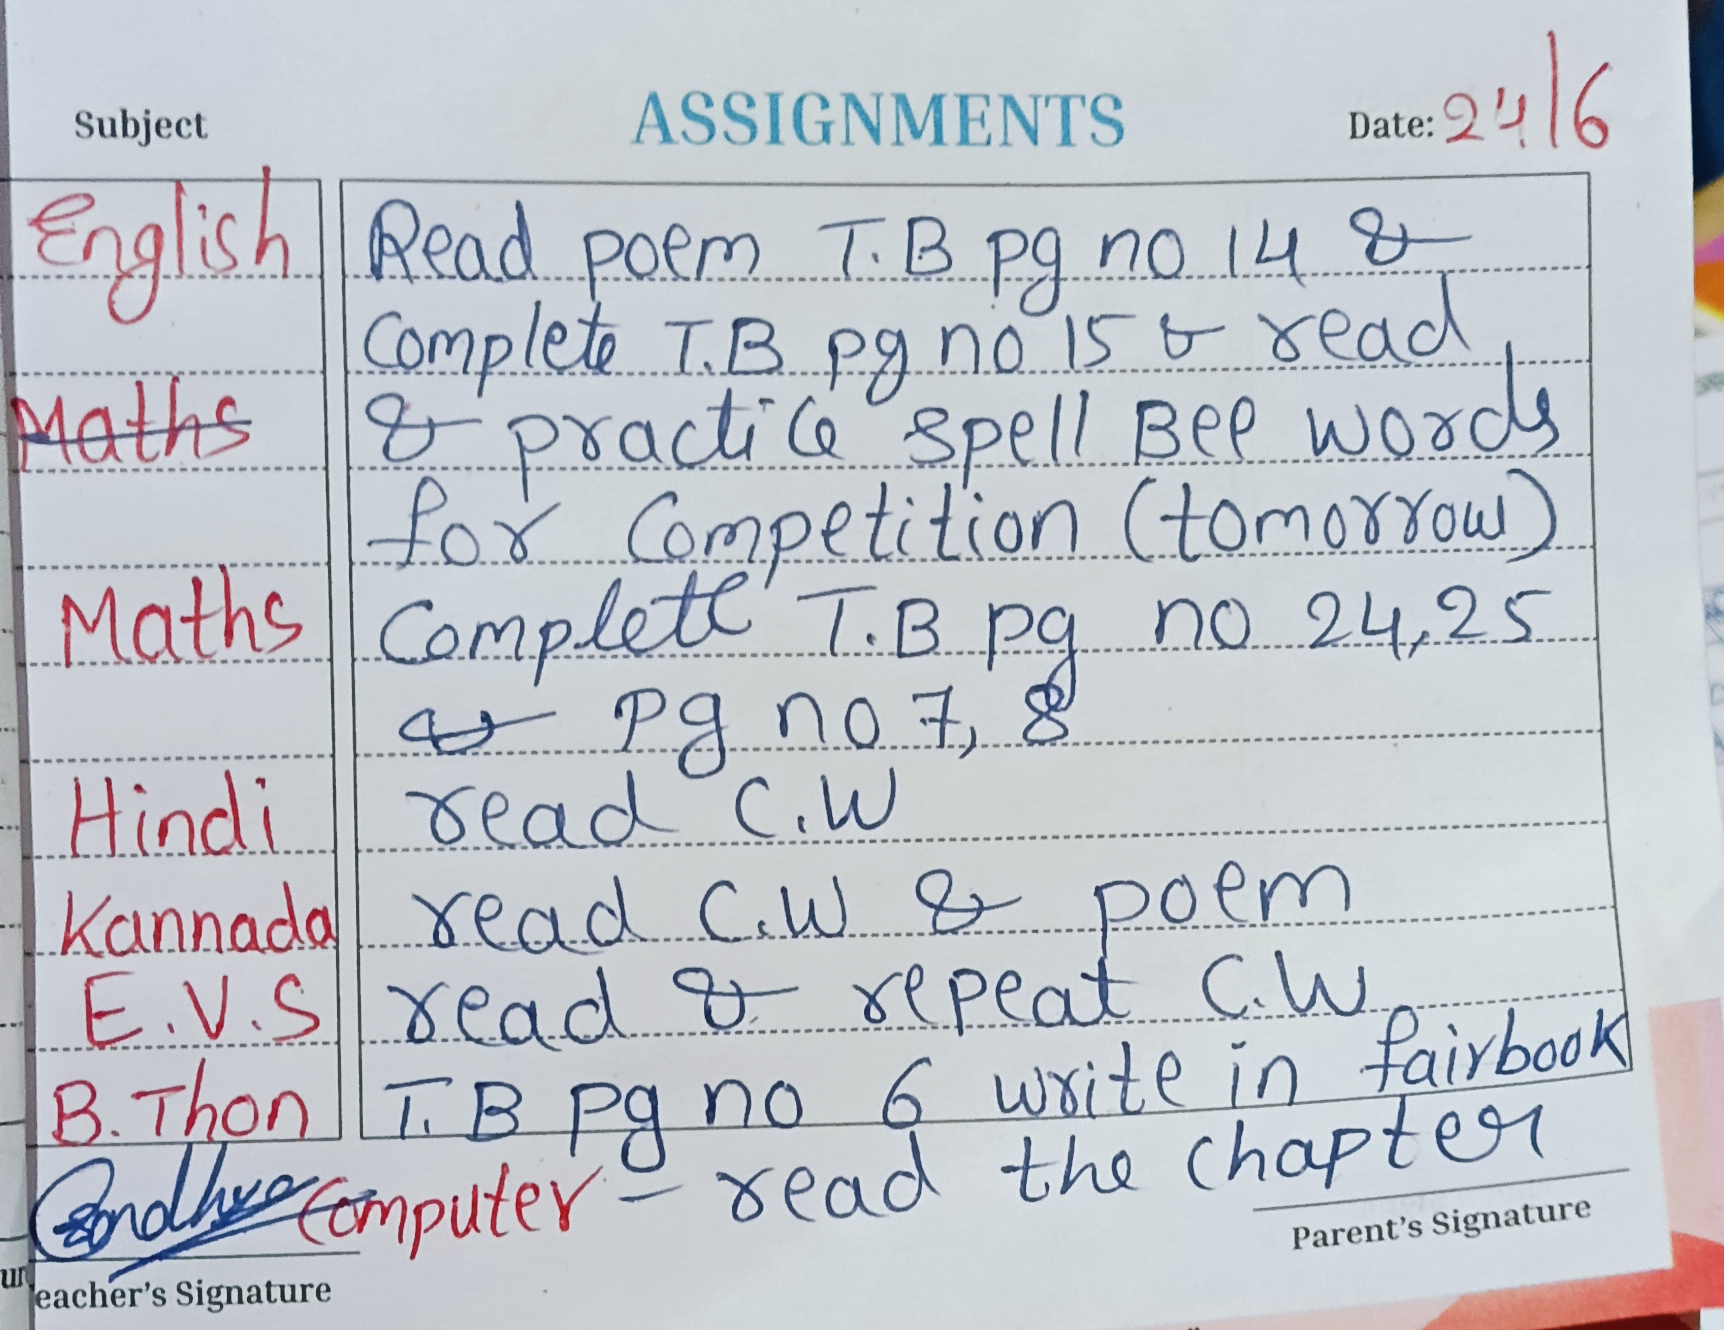 Subject ASSIGNMENTS Date: 24/6
English Read poem T.B pg no 14 &
Complete T.B pg no 15 & read
Maths & practice spell Bee words
for Competition (tomorrow)
Maths Complete T.B pg no 24,25
& Pg no 7, 8
Hindi read C.W
Kannada read C.W & poem
E.V.S read & repeat C.W
B.Thon T.B pg no 6 write in fairbook
Computer - read the chapter
Parent's Signature
eacher's Signature